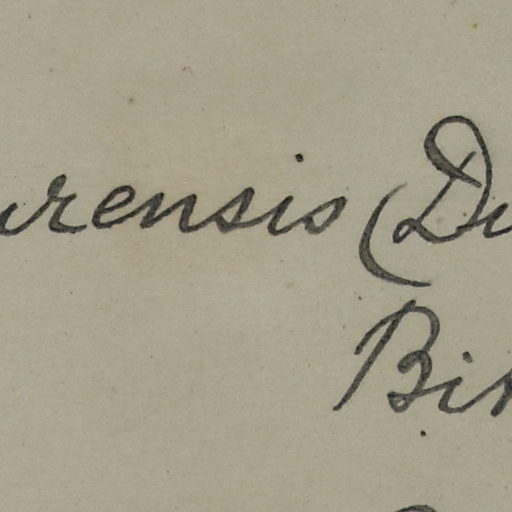 urensis (Du
Bit